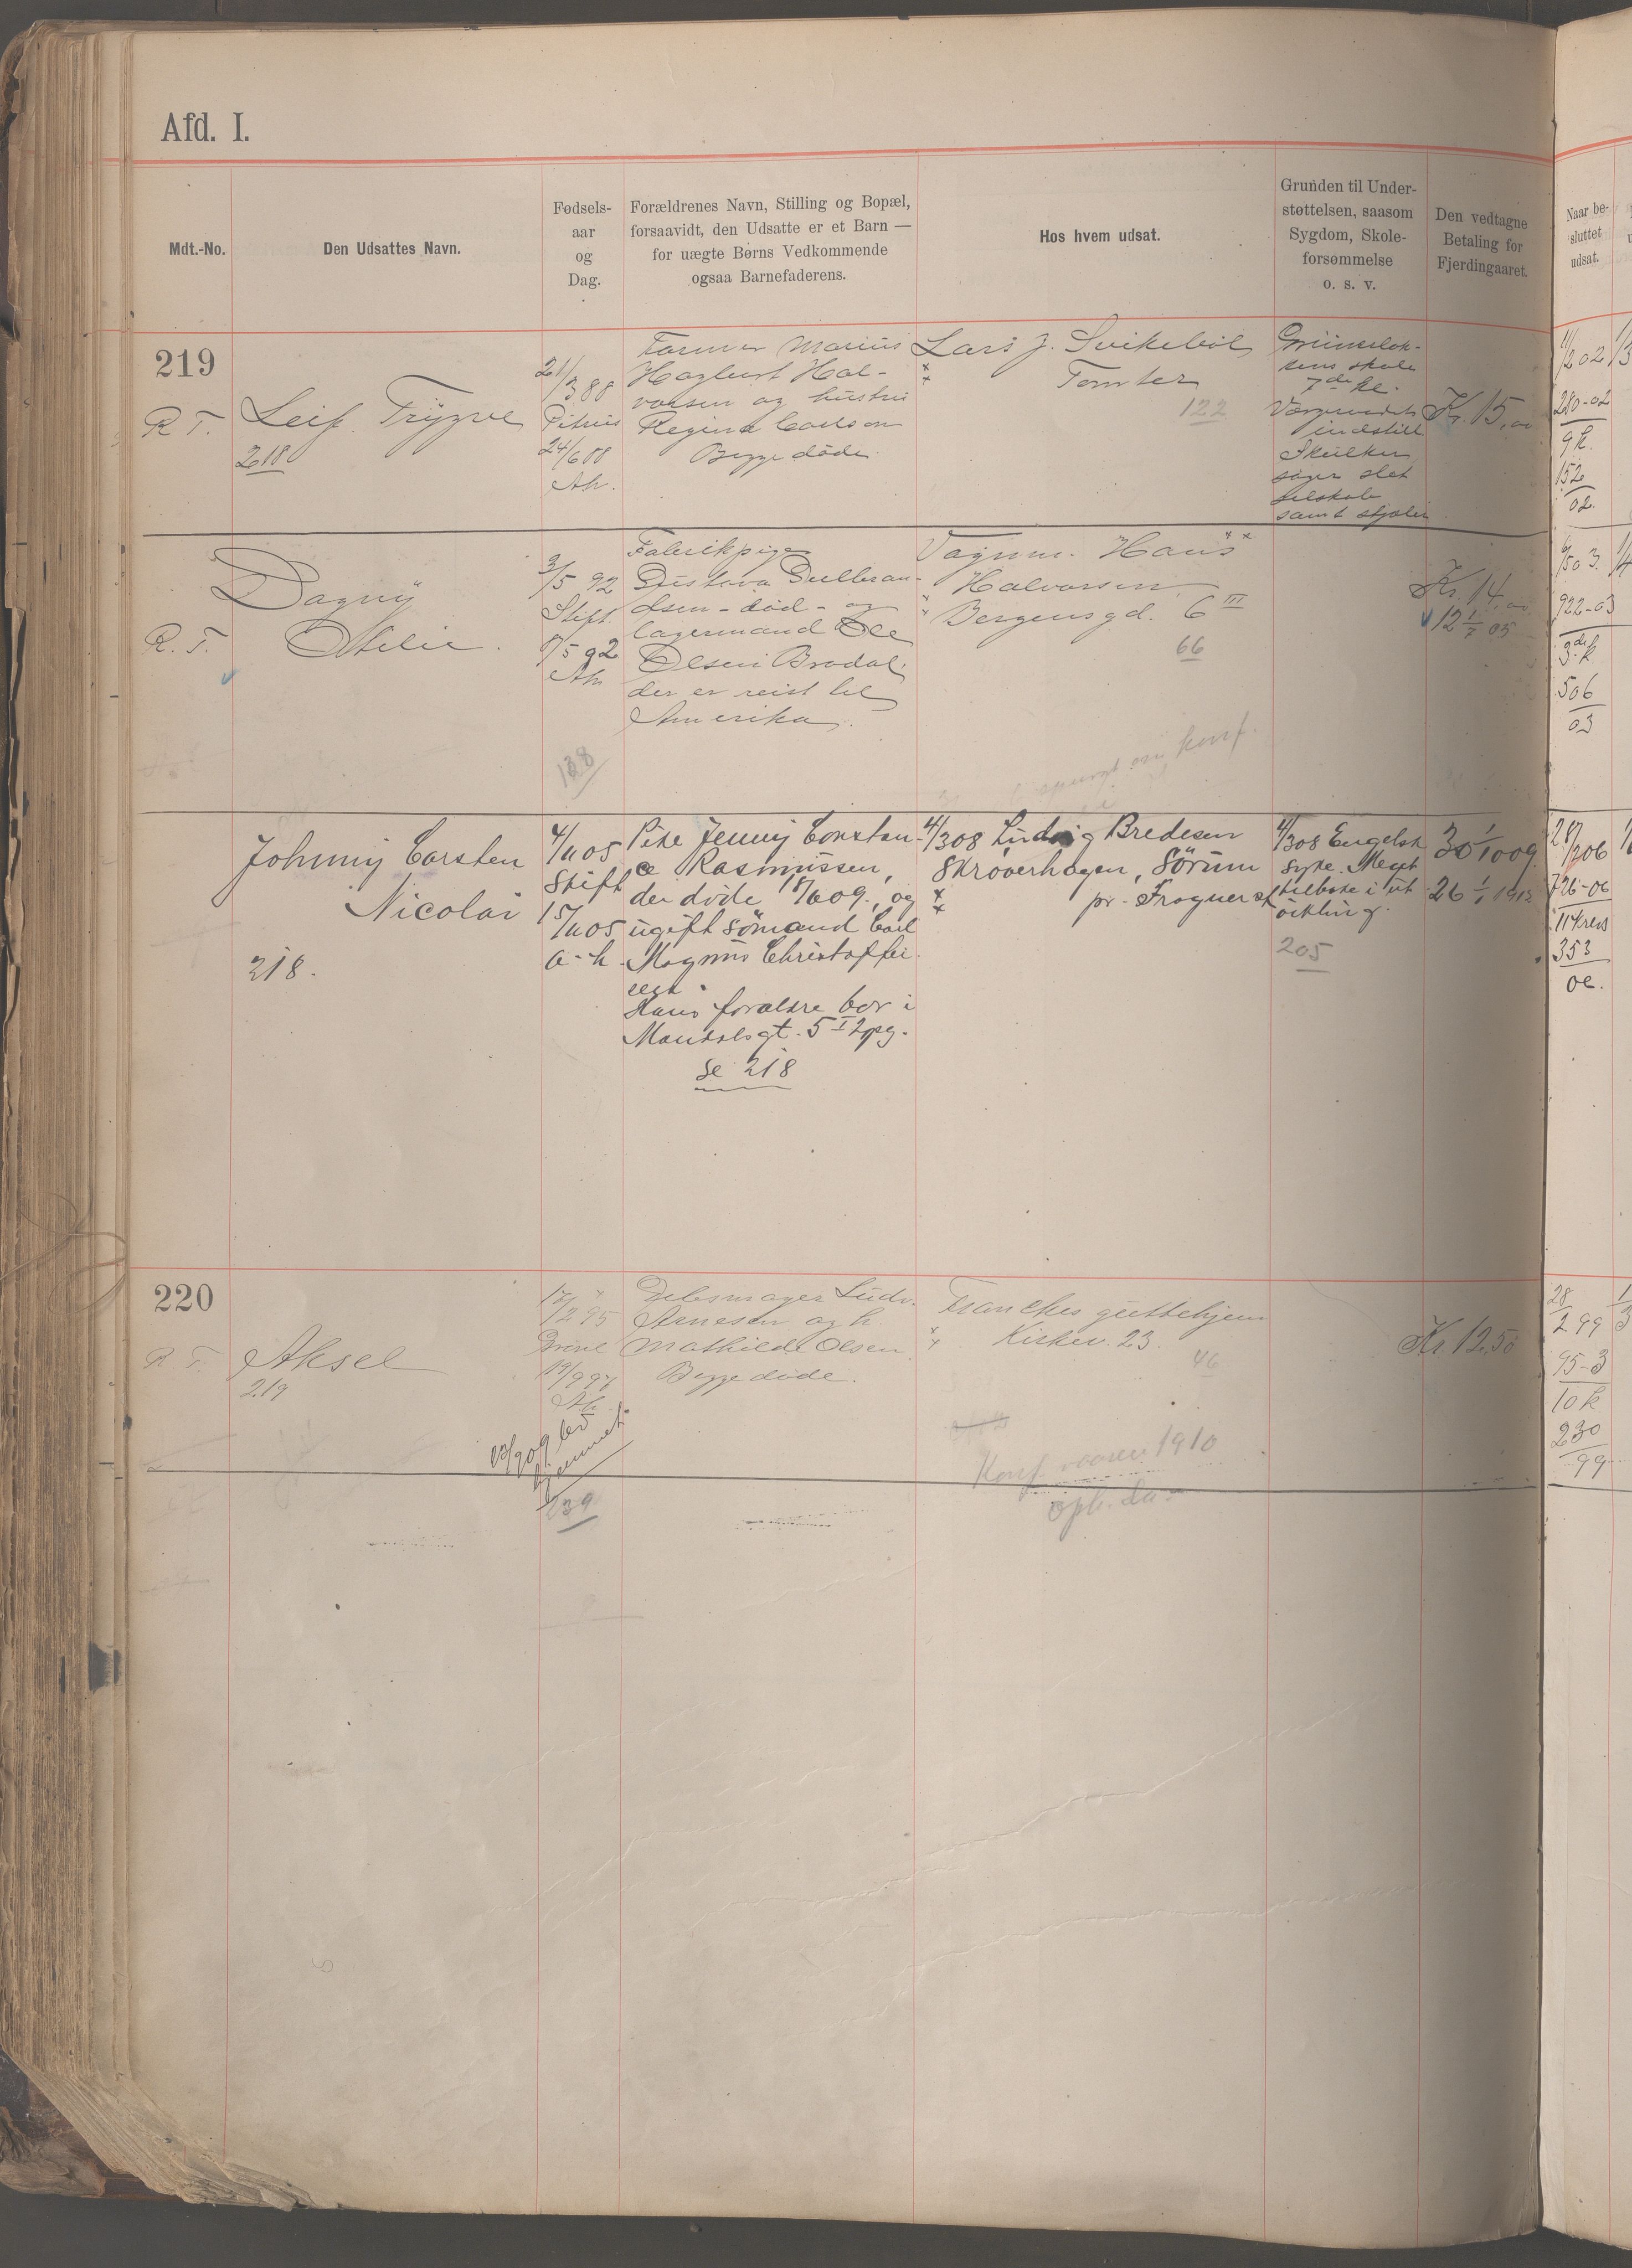 Afd. I.
Mdt.-No.
Den Udsattes Navn.
Fødsels-
aar
og
Dag.
Forældrenes Navn, Stilling og Bopæl,
forsaavidt, den Udsatte er et Barn —
for uægte Børns Vedkommende
ogsaa Barnefaderens.
Hos hvem udsat.
Grunden til Under-
støttelsen, saasom
Sygdom, Skole-
forsømmelse
o. s. v.
Den vedtagne
Betaling for
Fjerdingaaret.
Naar be-
sluttet
udsat.
219
R T.
Leif Trÿgve
218
21/3 88
Petrus
24/6 88
Ah.
Former Marius
Hagbart Hal-
vorsen og hustru
Regine Carlson
Begge døde.
Lars J. Svikebøl
Tomter
122
Grünerløk-
kens skole
7de kl.
Værgeraadets
indstill
Skulker
søger slet
selskab
samt stjæler
Kr. 15,00
11/2 02
280-02
9 k.
152
02
R. T.
Dagnÿ
Otelie.
3/5 92
Stift.
8/5 92
Ah
128
Fabrikpige
Gustava Gulbran-
dsen - død - og
lagermand Ole
Olsen Brodal,
der er reist til
Amerika.
Vognm. Hans
Halvorsen
Bergensgd. 6 III
66
spurgt om konf.
Kr. 14,00
12 1/7 05
6/5 03.
922-03
3de k.
506
03
Johnny Carsten
Nicolai
218.
4/11 05
Stift
15/11 05
a-h.
Pike Jenny Constan-
ce Rasmussen,
der døde 18/6 09., og
ugift sømand Carl
Magnus Christoffer
sen.
Hans forældre bor i
Mandalsgt. 5 I opg.
se 218
4/3 08 Ludvig Bredesen
Skrøverhagen, Sørum
pr. Frogner st
4/3 08 Engelsk
syke. Meget
tilbake i ut
vikling.
205
30 1/10 09
26 1/1 1912
28/2 06
726-06
353
06.
220
R T.
Aksel
219
17/2 95
19/9 97
Ah
139
Ludv.
Arnesen og h.
Mathilde Olsen
Begge døde.
Franckes guttehjem
Kirkev. 23.
46
Konf. vaaren 1910
oph. da
Kr. 12,50
28/2 99
95-3
10 k
230
99